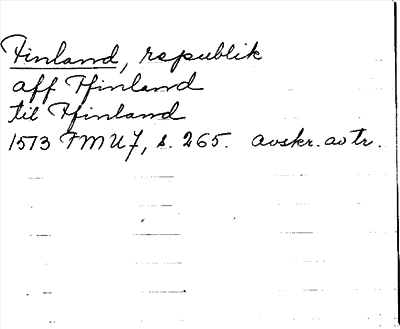 Finland, republik
aff Ffinland
til Ffinland
1573 FMU 7, s. 265. avskr. av tr.